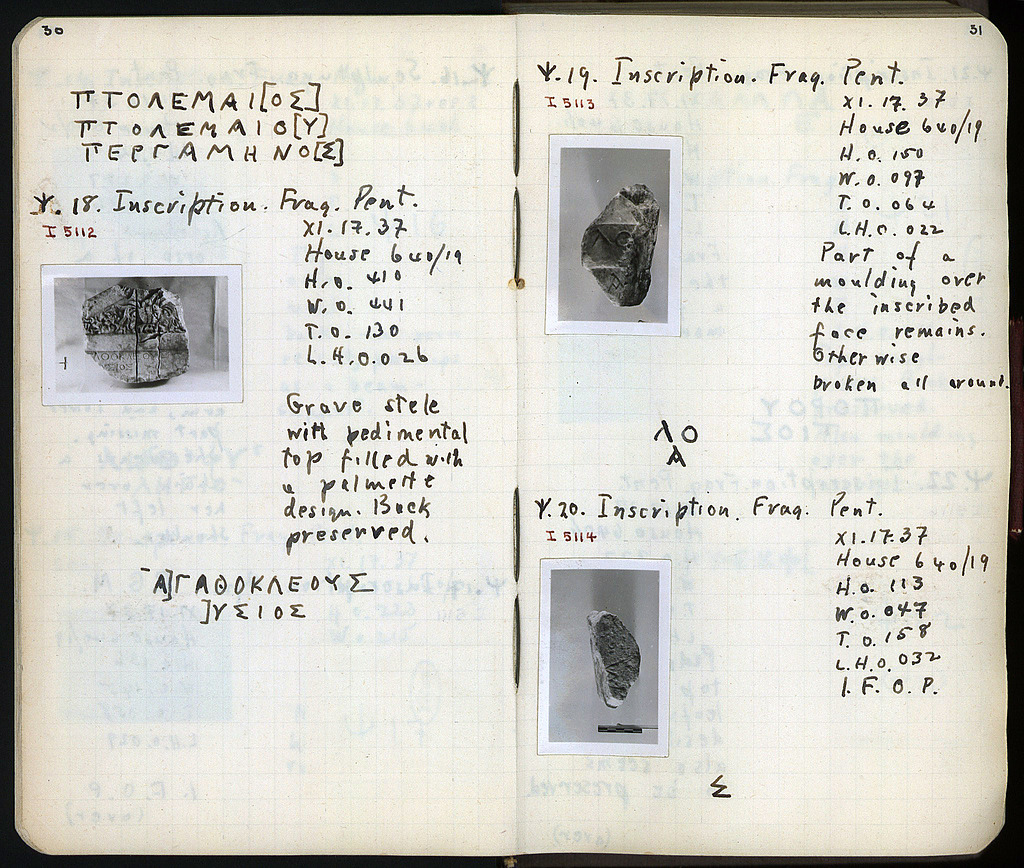 30
ΠΤΟΛΕΜΑΙ[ΟΣ]
ΠΤΟΛΕΜΑΙΟ[Υ]
ΠΕΡΓΑΜΗΝΟ[Σ]
Ψ. 18. Inscription. Frag. Pent.
I 5112
XI. 17. 37
House 640/19
H. 0. 410
W. 0. 441
T. 0. 130
L. H. 0. 026
Grave stele
with pedimental
top filled with
a palmette
design. Back
preserved.
Α]ΓΑΘΟΚΛΕΟΥΣ
]ΥΣΙΟΣ
31
Ψ. 19. Inscription. Frag. Pent.
I 5113
XI. 17. 37
House 640/19
H. 0. 150
W. 0. 097
T. 0. 064
L. H. 0. 022
Part of a
moulding over
the inscribed
face remains.
Otherwise
broken all around.
Λ Ο
Α
Ψ. 20. Inscription. Frag. Pent.
I 5114
XI. 17. 37
House 640/19
H. 0. 113
W. 0. 047
T. 0. 158
L. H. 0. 032
I. F. O. P.
Σ